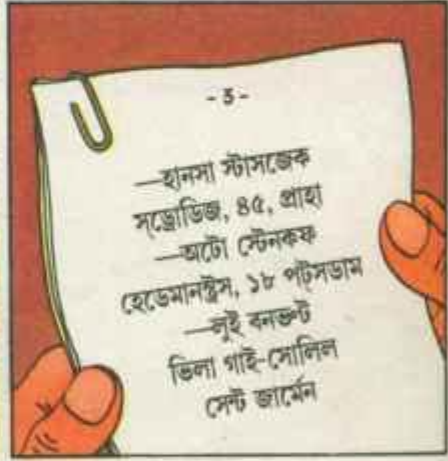 - 5 -
—হানসা স্টাসজেক
সড্রোডিজ, ৪৫, প্রাহা
—অটো স্টেনকফ
হেডেমানস্ট্রস, ১৮ পট্সডাম
—লুই বনভন্ট
ভিলা গাই-সোলিল
সেন্ট জার্মেন